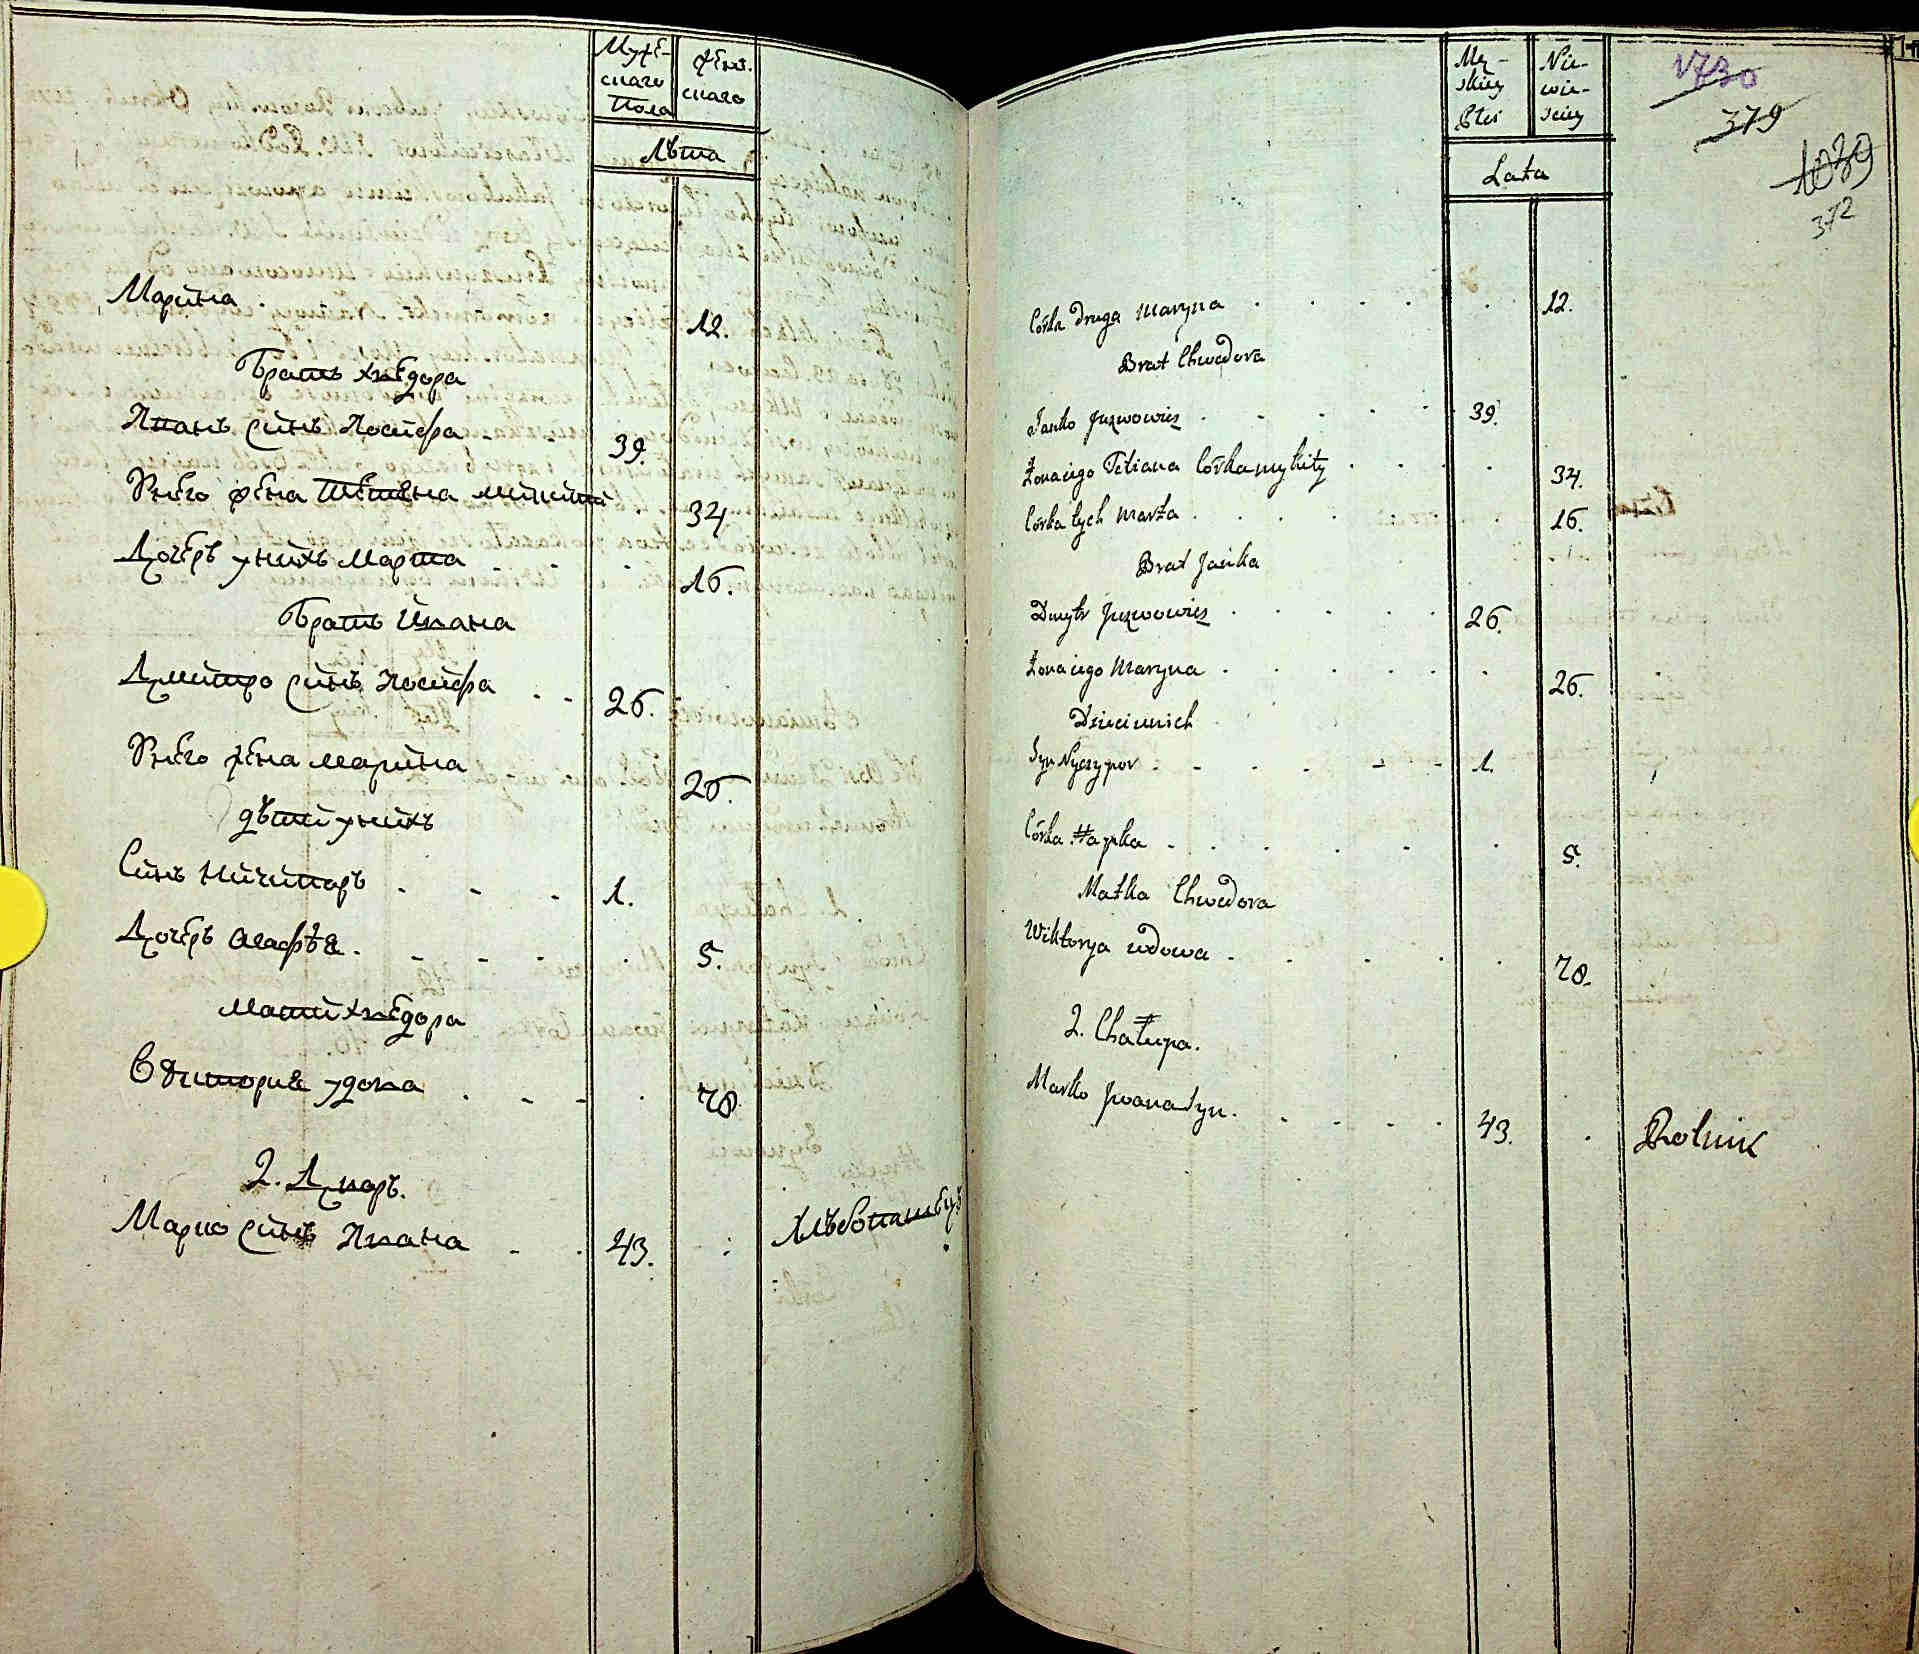 Муже-
скаго
Пола
Женс.
скаго
Лѣта
Марина . 12.
Братъ Хведора
Иванъ Синъ Иосифа - - 39.
Унего жена Тетiяна Микити . 34
Дочеръ унихъ Марта - - . 16.
Братъ Ивана
Дмитро Синъ Иосифа - - 26.
Унего жена Марина 26.
дѣти унихъ
Синъ Ничипоръ - - - 1.
Дочеръ Агафѣя . - - - . 5.
Мати Хведора
Викторiя удова . - - - . 78
2. Дворъ.
Марко Синъ Ивана - . 43. : Хлѣбопашецъ
Mę-
skiey
Płci
Nie-
wie-
sciey
Lata
1730
379
1039
372
Córka druga Maryna . . . . . 12.
Brat Chwedora
Janko Juzwowicz . - . . . 39.
Żona iego Tetiana Córka Mykity . . . . 34.
Córka tych Marta . . . . . 16.
Brat Janka
Dmytr Juzwowicz . . . . . 26.
Żona iego Maryna . . . . . 26.
Dzieci unich
Syn Nyczypor . - - - - - 1.
Córka Hapka - . . . . . 5.
Matka Chwedora
Wiktorya wdowa - . . . . 78.
2. Chałupa.
Marko Jwana Syn . . . . . 43. . Rolnik